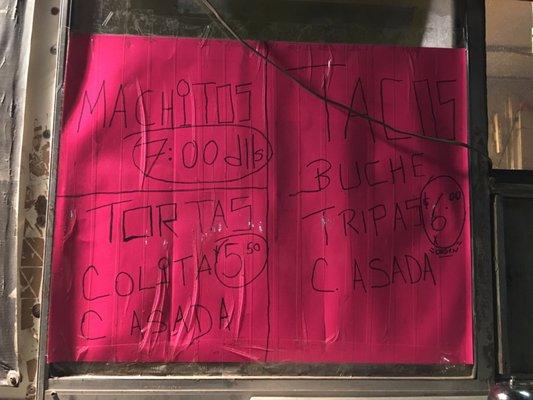 MACHITOS
7:00 dlls
TORTAS
COLITA $5.50
C ASADA
TACOS
BUCHE
TRIPAS $6.00
ORDEN
C. ASADA